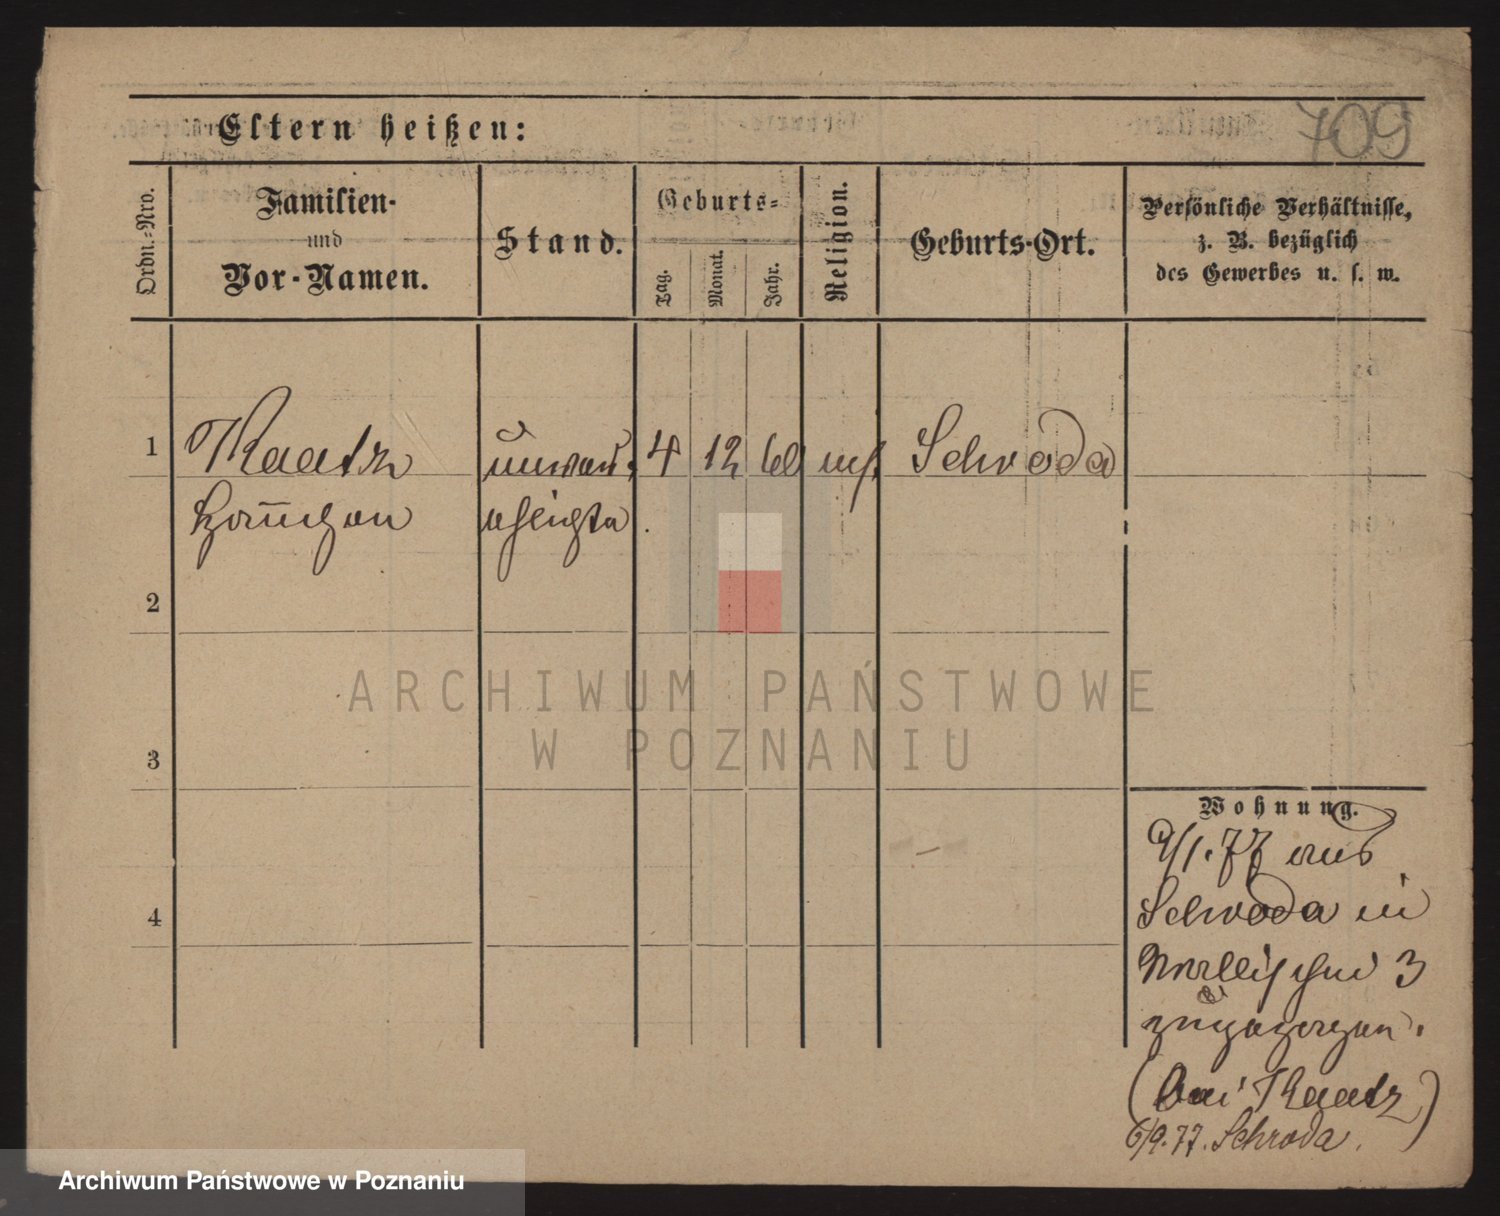 709
Eltern heißen:
Ordn.-Nro.
Familien-
und
Vor-Namen.
Stand.
Geburts-
Tag.
Monat.
Jahr.
Religion.
Geburts-Ort.
Persönliche Verhältnisse,
z. B. bezüglich
des Gewerbes u. s. w.
1
Kaatz unver- 4 12 60 mos. Schroda
ehlichte
2
3
4
Wohnung.
9/1.77 aus
Schroda in
Wallischei 3
zugezogen.
(bei Kaatz)
6/9.77. Schroda.
ARCHIWUM PAŃSTWOWE
W POZNANIU
Archiwum Państwowe w Poznaniu